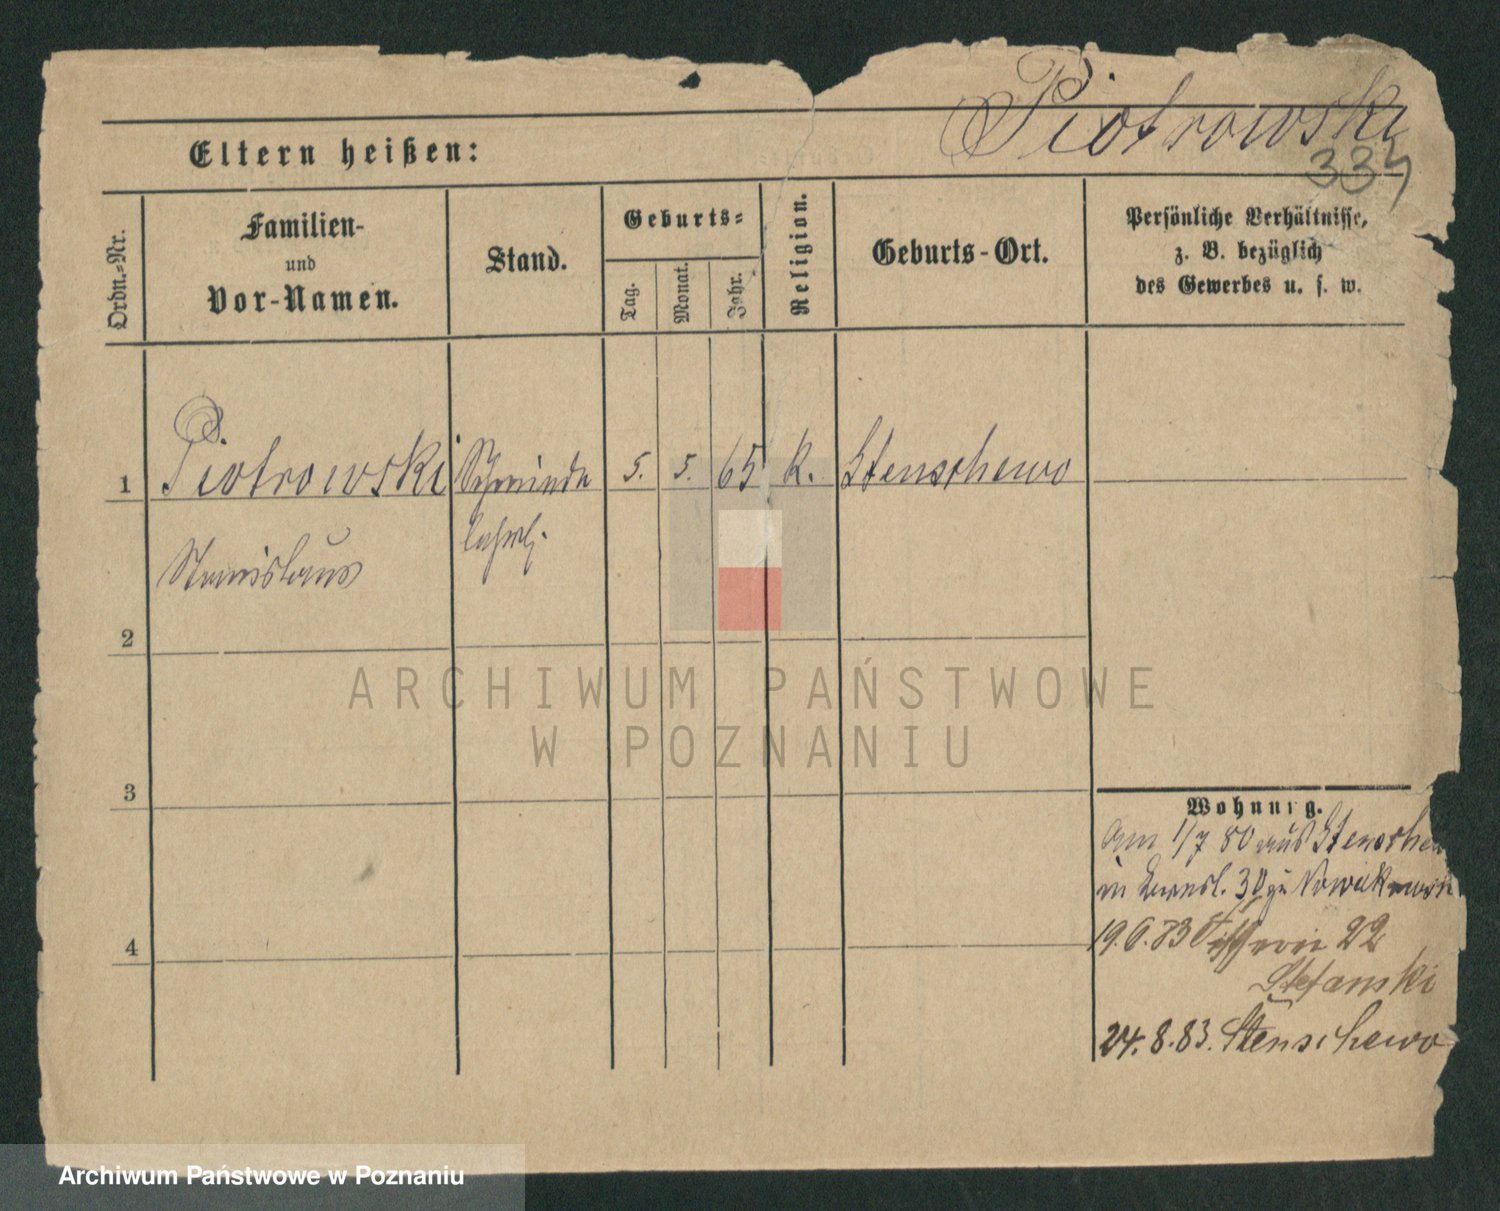 Piotrowski
334
Eltern heißen:
Ordn.-Nr.
Familien-
und
Vor-Namen.
Stand.
Geburts-
Tag.
Monat.
Jahr.
Religion.
Geburts-Ort.
Persönliche Verhältnisse,
z. B. bezüglich
des Gewerbes u. s. w.
1 Piotrowski 5. 5. 65 k. Stenschewo
Stanislaus
2
3
4
Wohnung.
am 1/7 80 aus Stensche
in 30 zu Nowakowsk
19.6.83 Fischerei 22
Stefanski
24.8.83. Stenschewo
ARCHIWUM PAŃSTWOWE
W POZNANIU
Archiwum Państwowe w Poznaniu